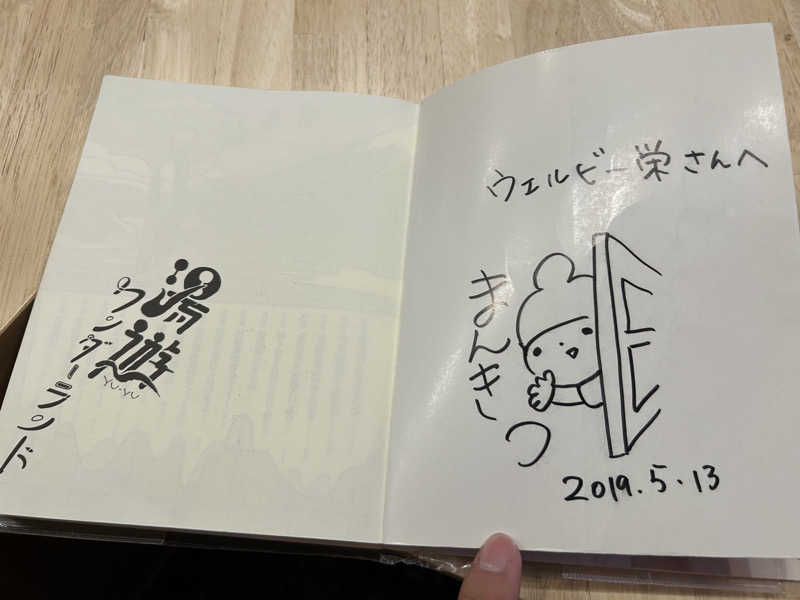 湯遊
YU-YU
ワンダーランド
ウェルビー栄さんへ
まんきつ
2019.5.13